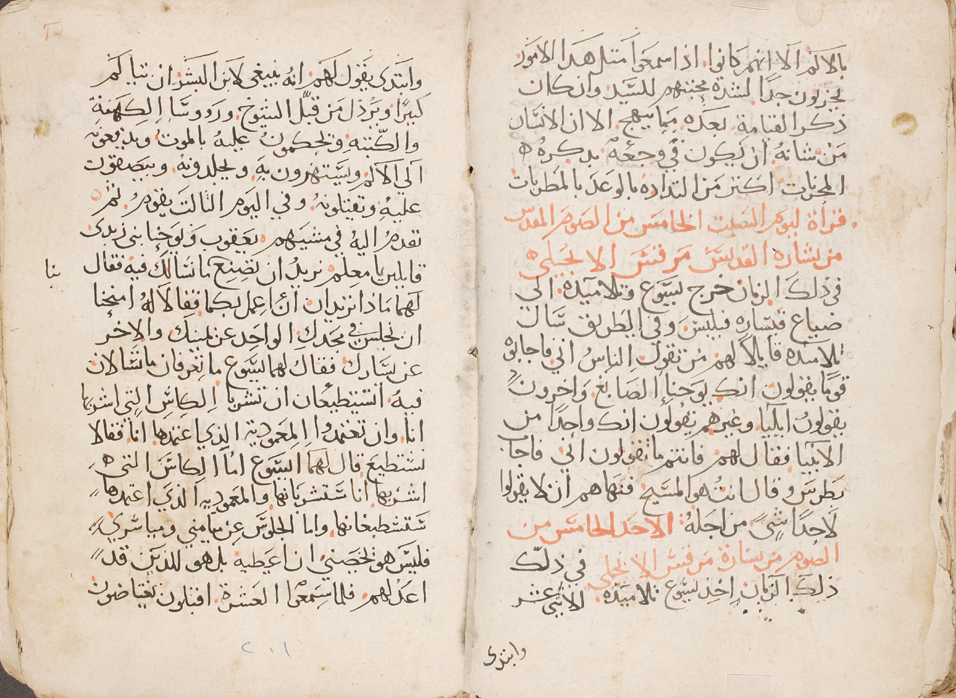 بالالم الا انهم كانوا اذا سمعوا امثل هذا الامور
يحزنون جدا لشدة محبتهم للسيد وان كان
ذكر القيامة بعده مما يبهج الا ان الانسان
من شانه ان يكون في وجعه بذكره
المحزنات اكثر من التداده بالوعد بالمطربات
قراة ليوم السبت الخامس من الصوم المقدس
من بشارة القديس مرقس الانجيلي
في ذلك الزمان خرج يسوع وتلاميذه الي
ضياع قيسارية فيلبس وفي الطريق سال
تلاميذه قايلا لهم من تقول الناس اني فاجابوه
قوما يقولون انك يوحنا الصابغ واخرون
يقولون ايليا وغيرهم يقولون انك واحدا من
الانبيا فقال لهم فانتم ما تقولون اني فاجاب
بطرس وقال انت هو المسيح فنهاهم ان لا يقولوا
لاحدا شي من اجله الاحد الخامس من
الصوم من بشارة مرقس الانجيلي في ذلك
ذلك الزمان اخذ يسوع تلاميذه الاثني عشر
وابتدي
وابتدي يقول لهم انه ينبغي لابن البشر ان يتالم
كثيرا ويرذل من قبل الشيوخ ورووسا الكهنة
والكتبه ويحكمون عليه بالموت ويدفعونه
الي الالام ويستهزون به ويجلدونه ويبصقون
عليه ويقتلونه وفي اليوم الثالث يقوم ثم
تقدم اليه في مشيهم يعقوب ويوحنا بني زبدي
قايلين يا معلم نريد ان تصنع ما نسالك فيه فقال
لهما ماذا تريدان ان اعمل بكما فقالا له امنحنا
ان نجلس في مجدك الواحد عن يمينك والاخر
عن يسارك فقال لهما يسوع ما تعرفان ما تسالان
فيه اتستطيعان ان تشربا الكاس التي اشربها
انا وان تعتمدوا المعمودية الذي اعتمدها انا فقالا
نستطيع قال لهما يسوع اما الكاس التي
اشربها انا ستشربانها والمعمودية الذي اعتمدها
ستستطيعانها واما الجلوس عن ميامني ومياسري
فليس هو يخصني ان اعطيه بل هو للذين قد
اعد لهم فلما سمعوا العشرة اقبلون يتغاضون